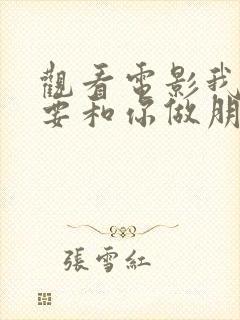 觀看電影我
要和你做朋
張雪紅